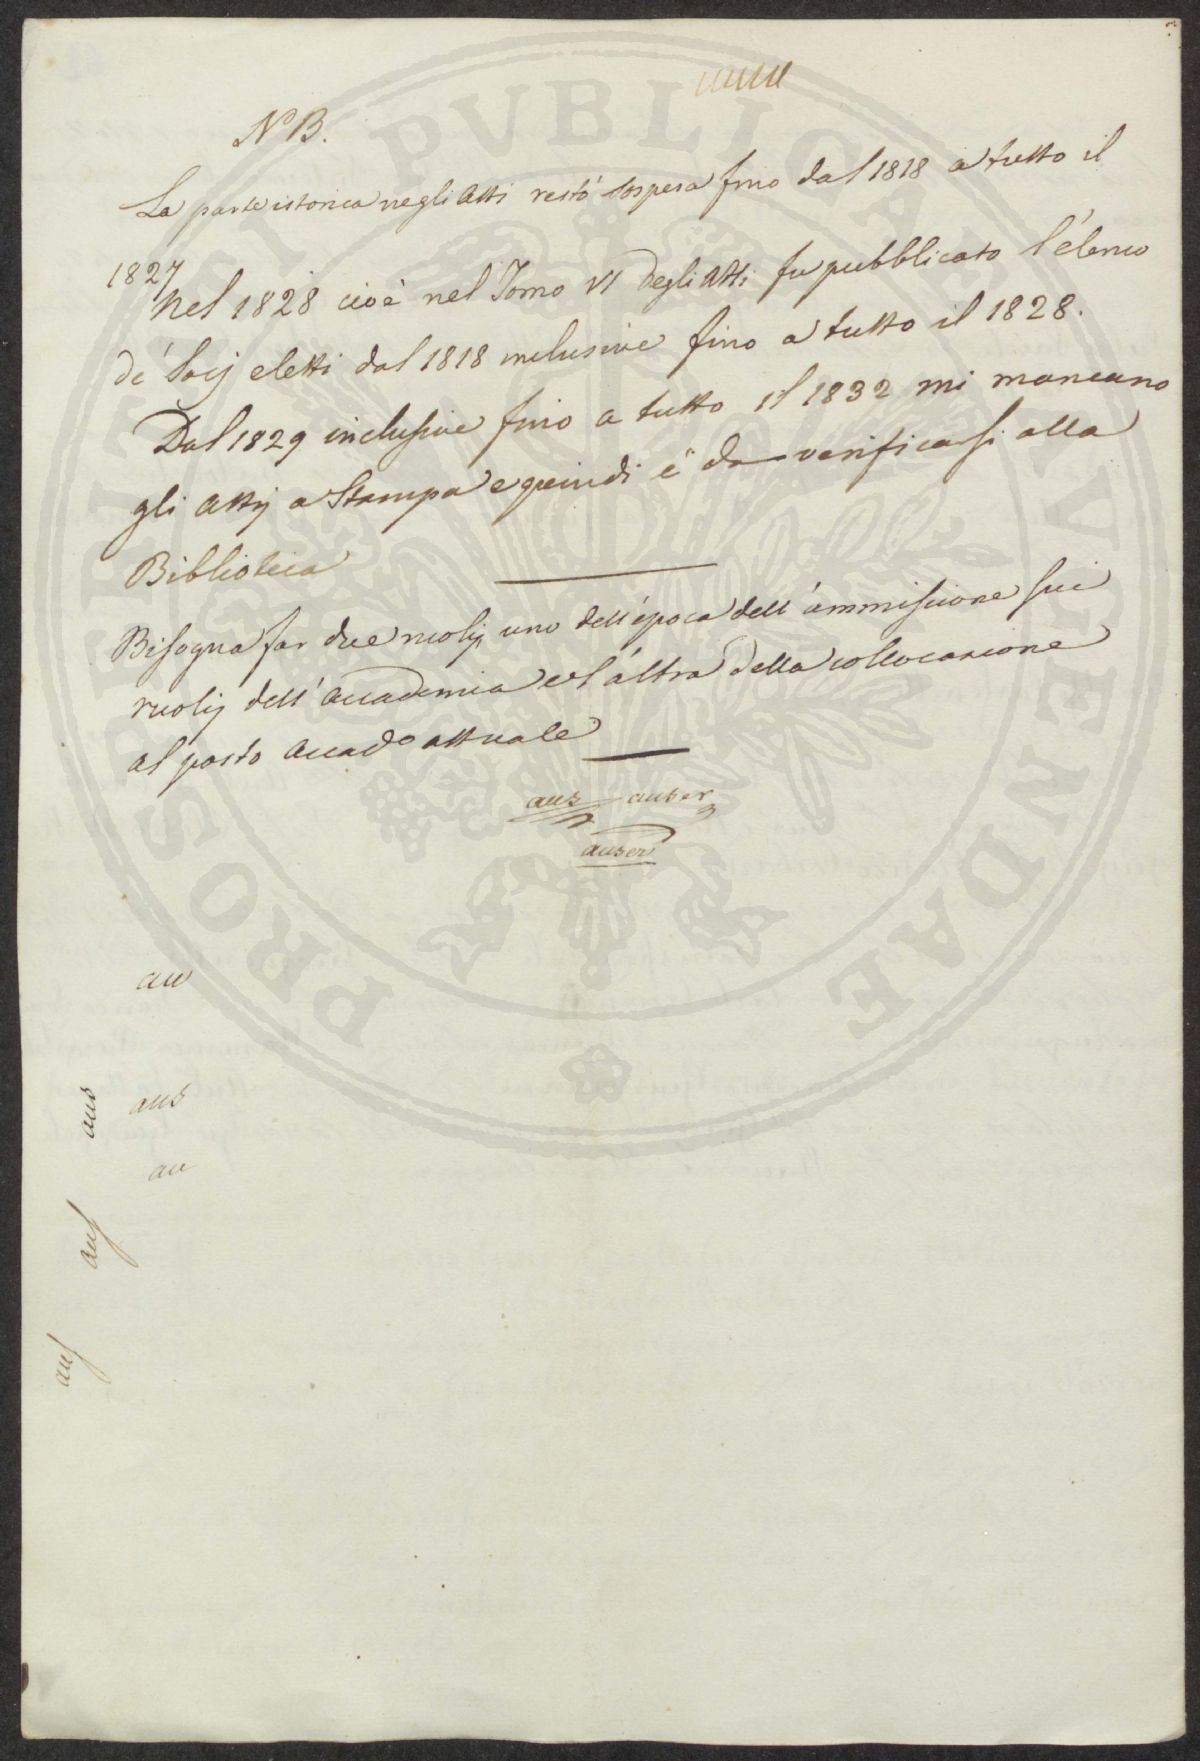 N.B.
La parte istorica negli Atti restò sospesa fino dal 1818 a tutto il
1827
Nel 1828 cioè nel Tomo VI degli Atti fu pubblicato l'elenco
de' Socij eletti dal 1818 inclusive fino a tutto il 1828.
Dal 1829 inclusive fino a tutto il 1832 mi mancano
gli Attij a Stampa e quindi è da verificarsi alla
Biblioteca
Bisogna far due ruolij uno dell'epoca dell'ammissione sui
ruolij dell'Accademia e l'altra della collocazione
al posto Accad.o attuale
aus auser
auser
au
aus
aus
au
aus
aus
PROSPERITATI PVBLICAE ALVENDAE